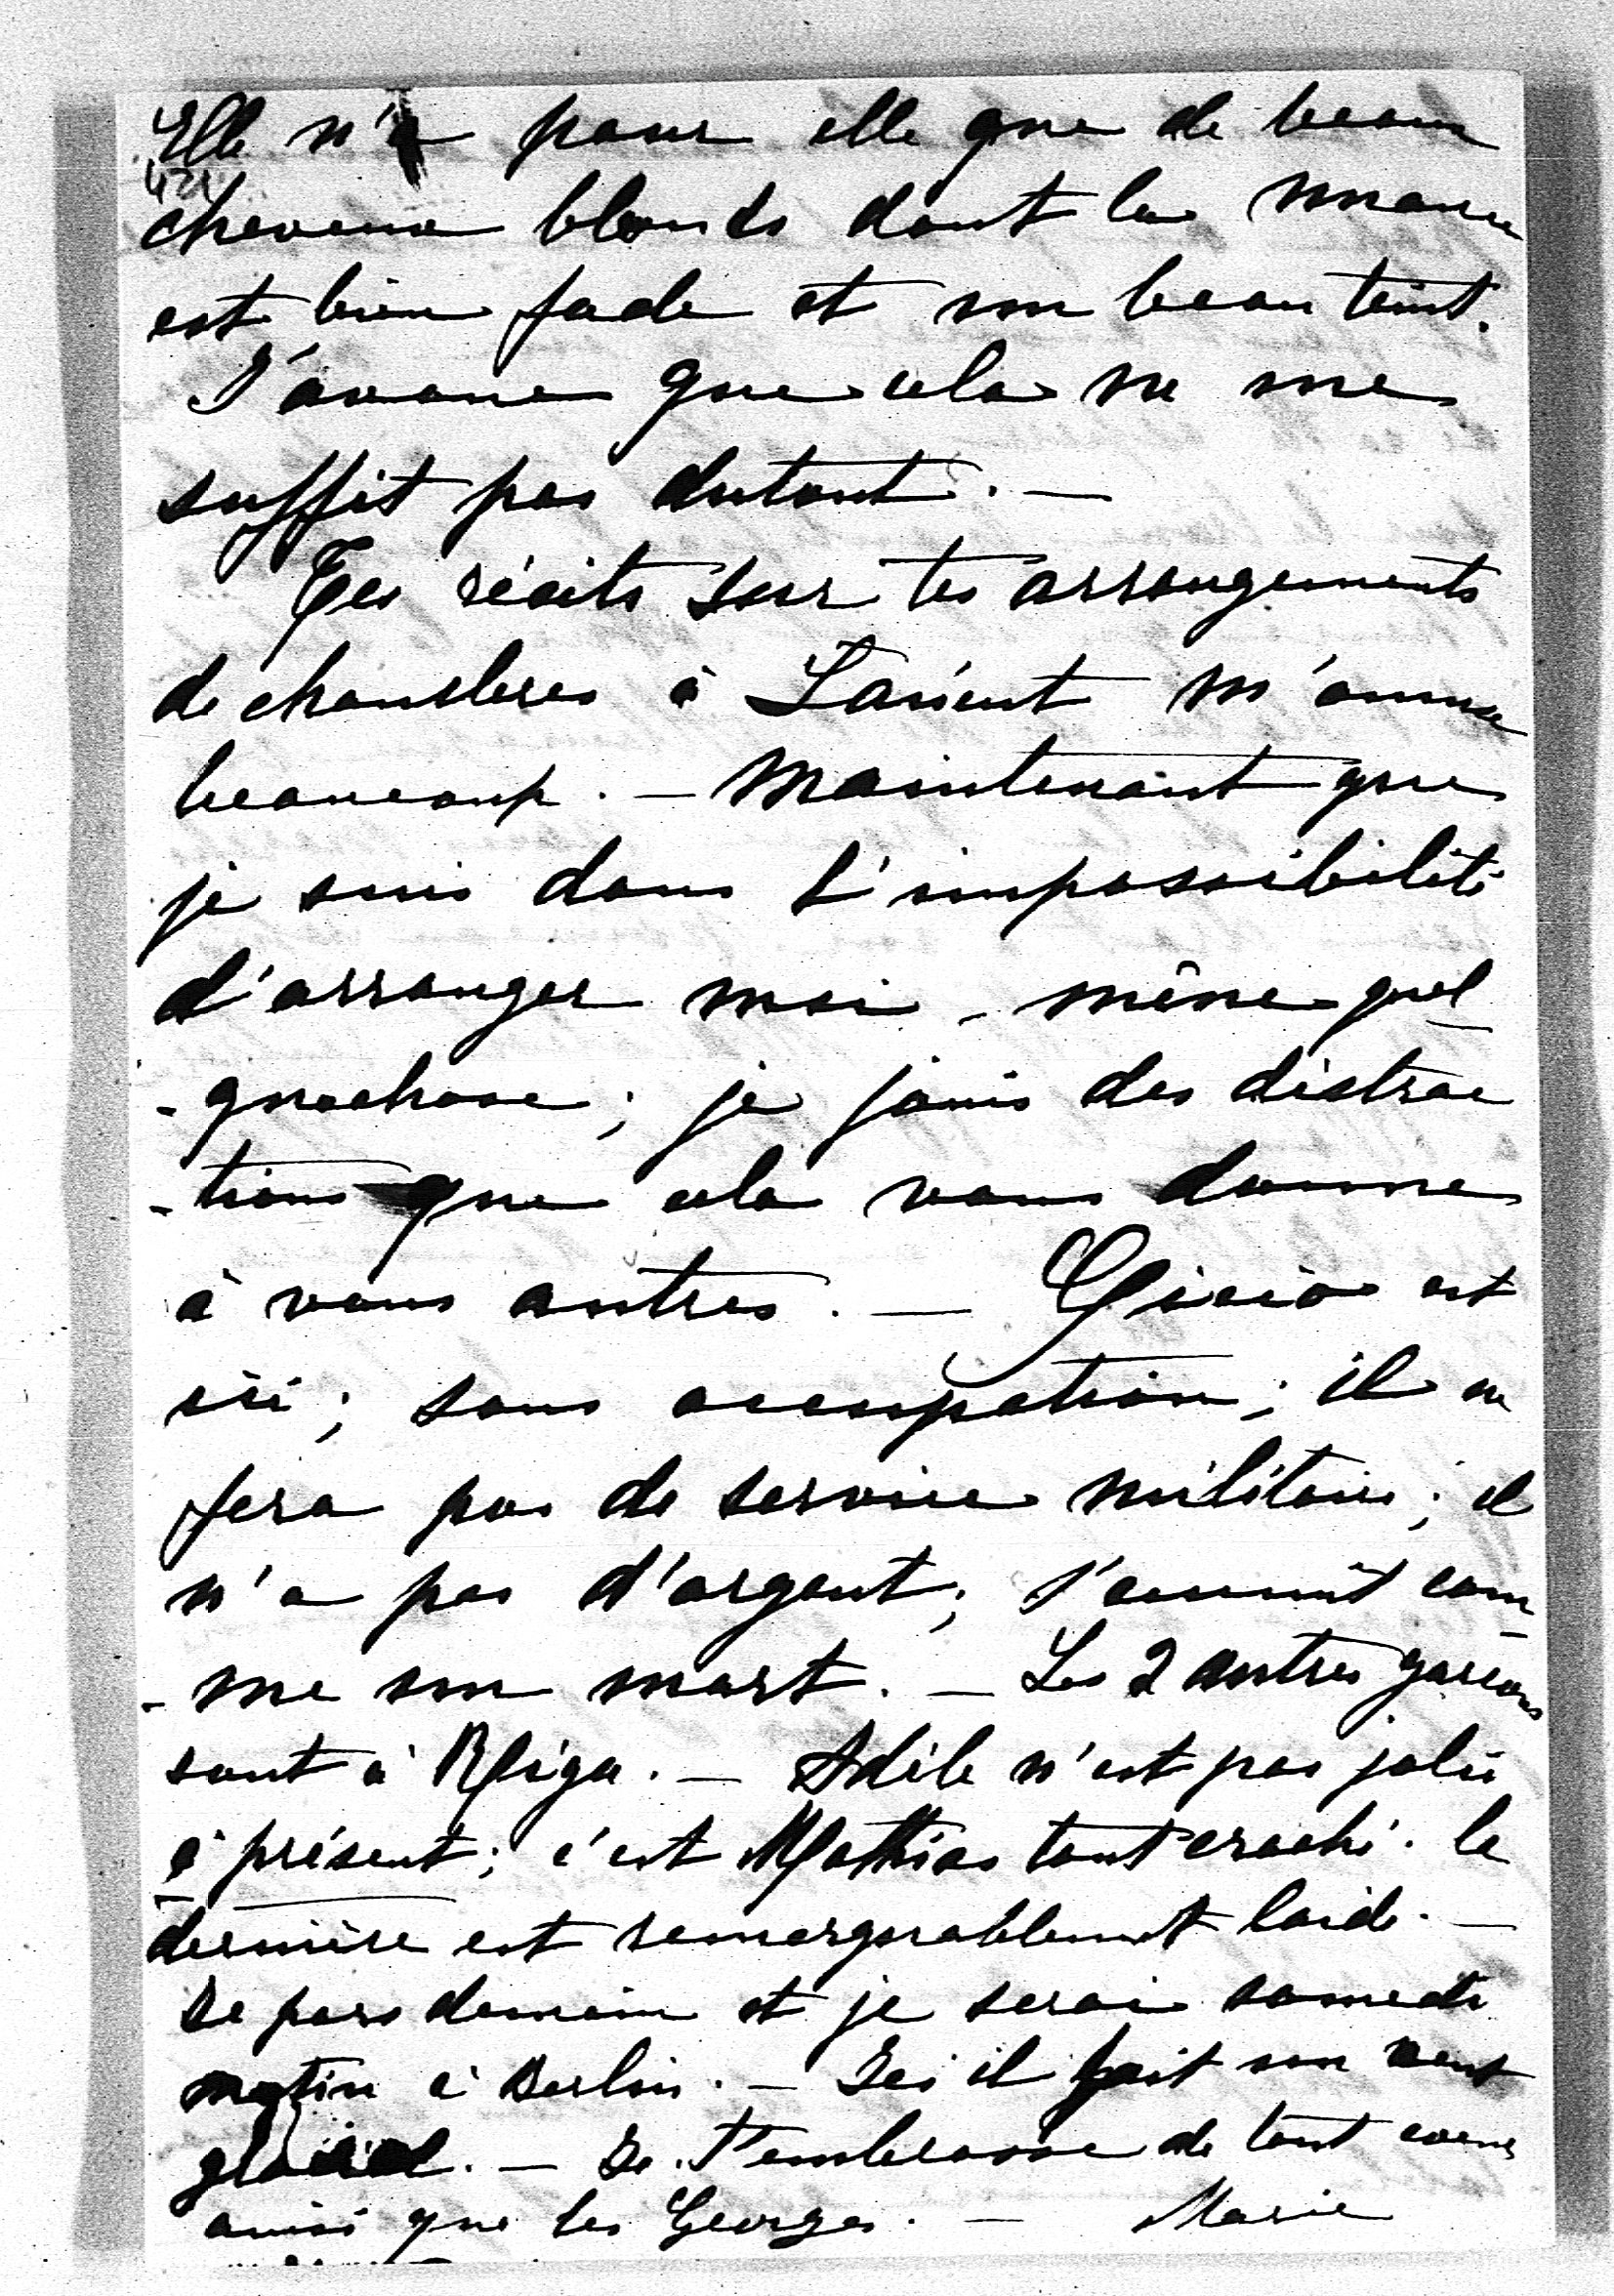 Elle n'a pour elle que de beaux
cheveux blonds dont la nuance
est bien fade et son beau teint.
J'avoue que cela ne me
suffit pas dutout. —
Tes récits sur tes arrangements
de chambres à m'amuse
beaucoup. — Maintenant que
je suis dans l'impossibilité
d'arranger moi-même quel
-quechose; je jouis des distrac
-tions que cela vous donne
à vous autres. — est
ici; sans occupation; il ne
fera pas de service militaire; il
n'a pas d'argent; s'ennuit com
-me un mort. — Les 2 autres garçons
sont à Riga. — Adèle n'est pas jolie
à présent; c'est Mathias tout craché. la
dernière est remarquablement laide. —
Je pars demain et je serai samedi
matin à Berlin. — Ici il fait un vent
glacial. — Je t'embrasse de tout coeur
ainsi que les Georges. — Marie